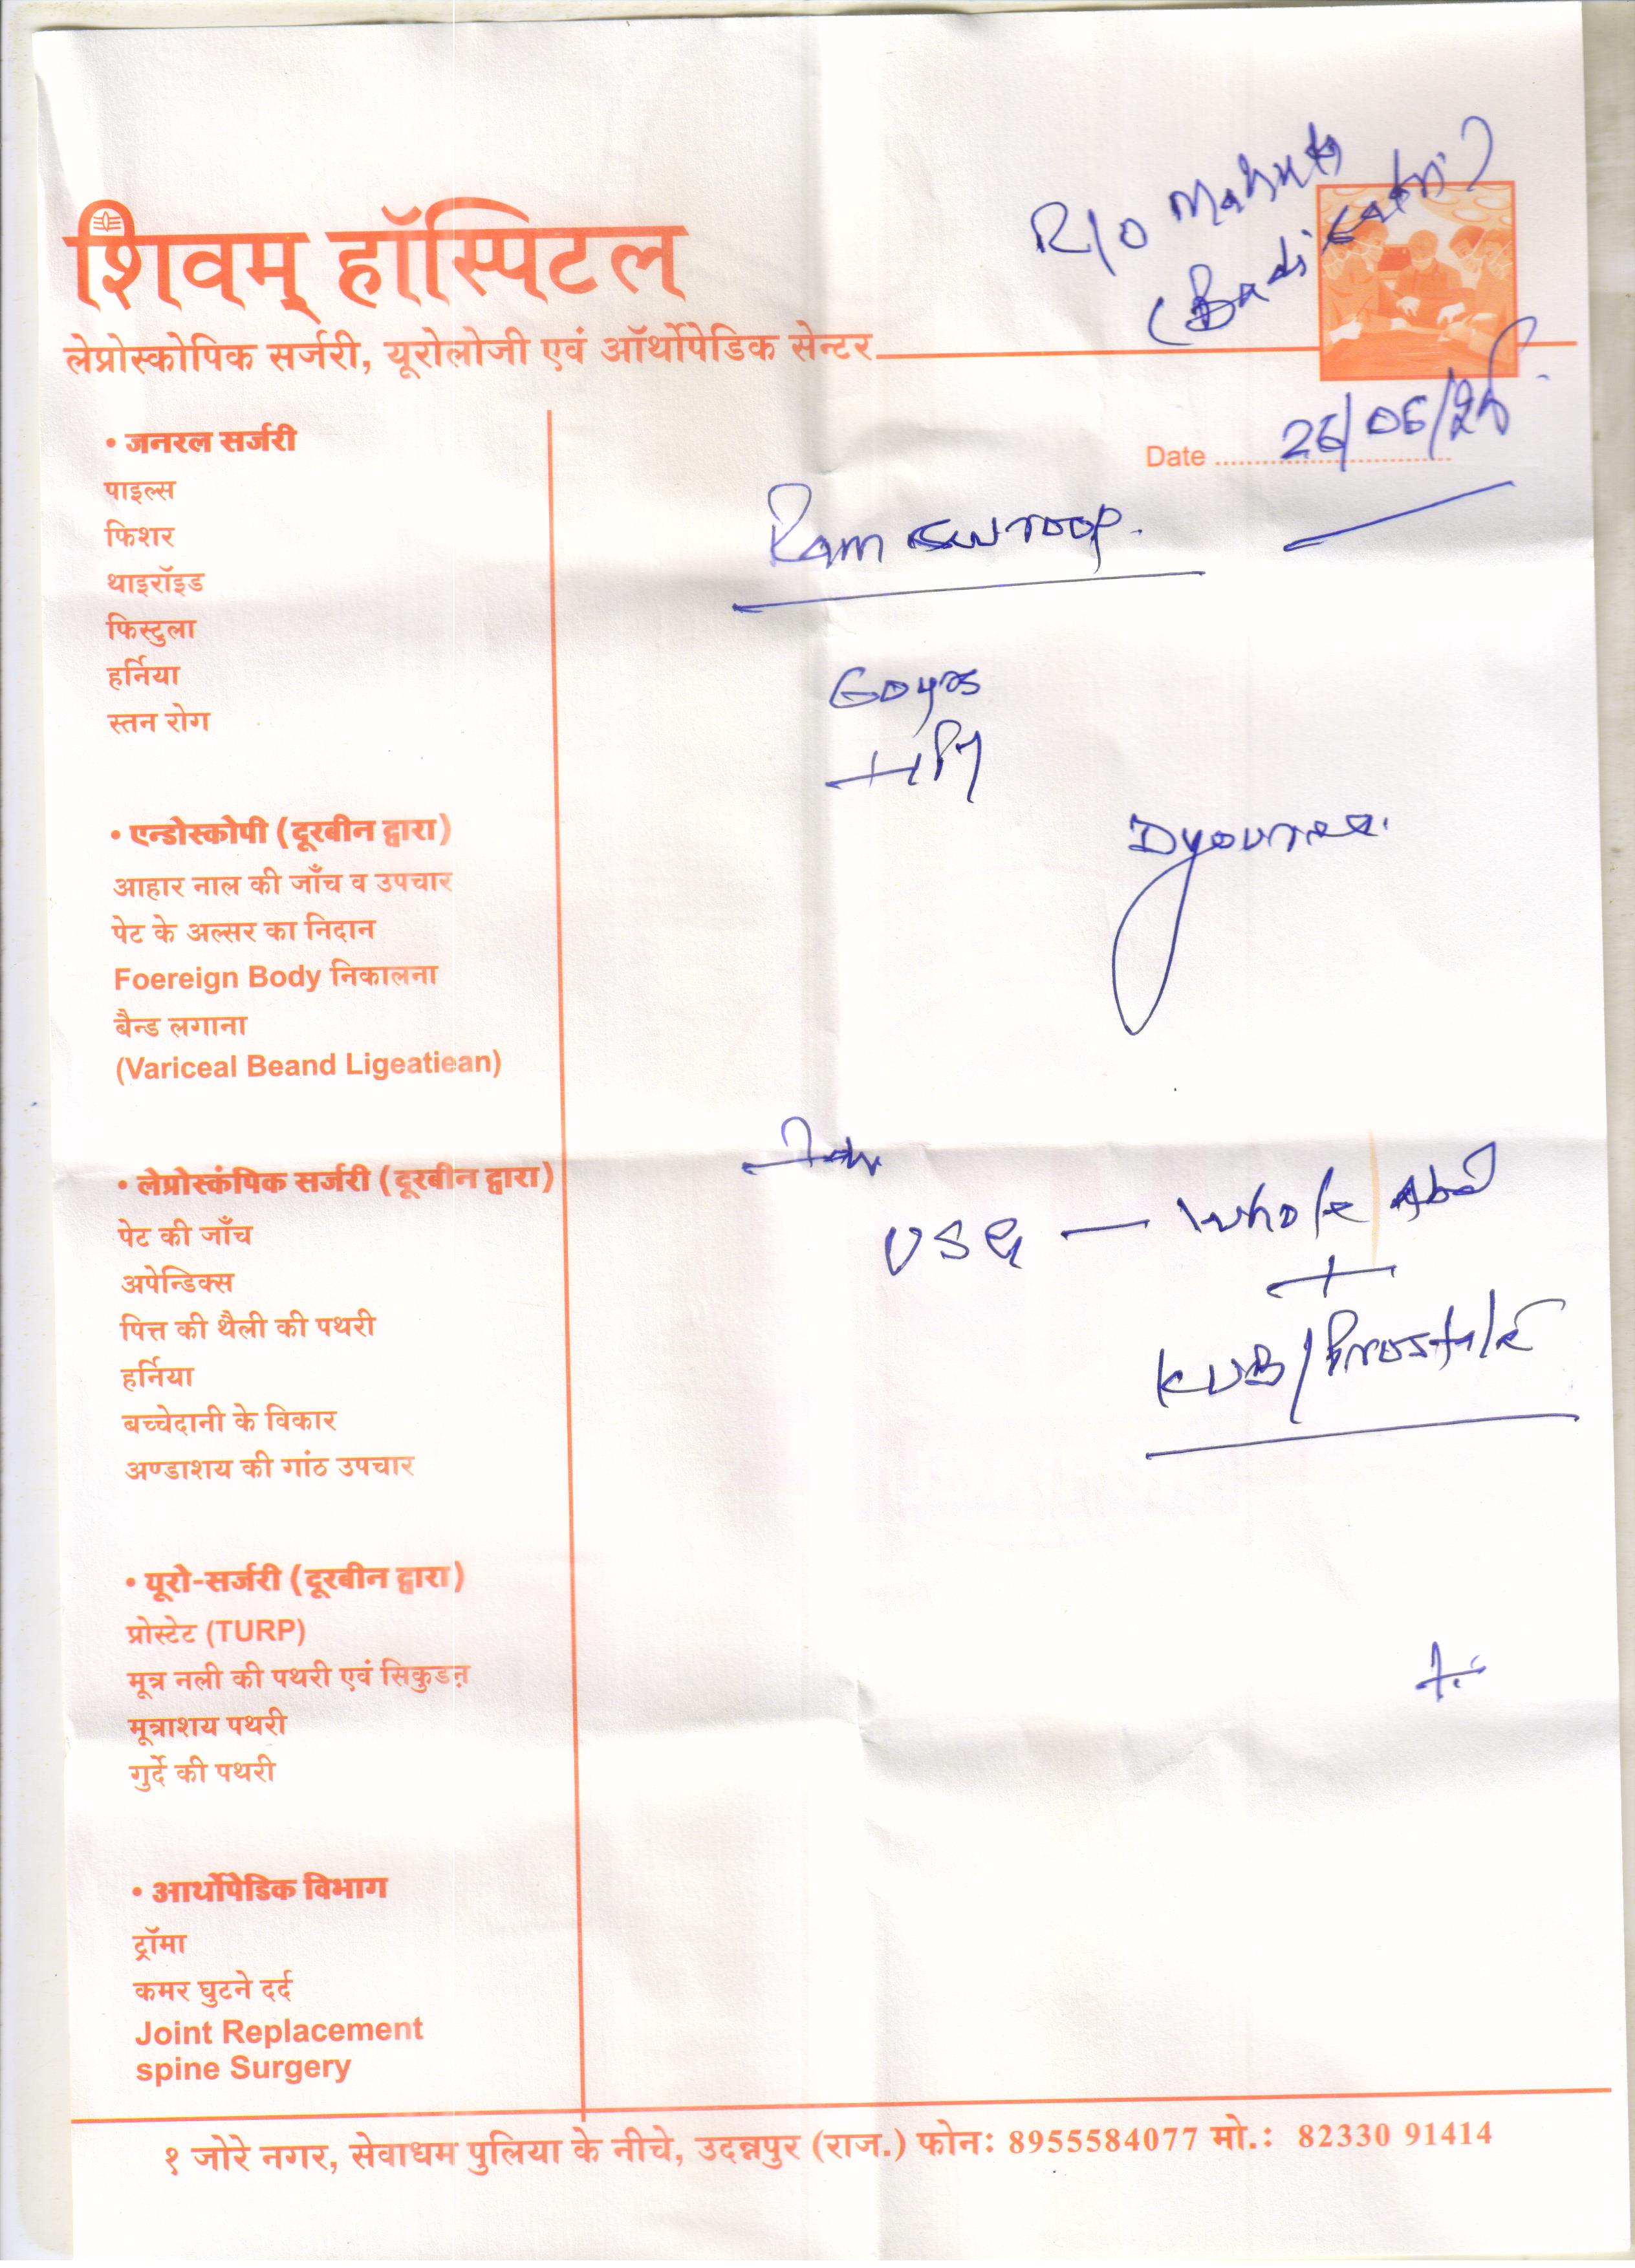 R/O
शिवम् हॉस्पिटल
लेप्रोस्कोपिक सर्जरी, यूरोलोजी एवं ऑर्थोपेडिक सेन्टर
Date 26/06/
Ram swroop.
• जनरल सर्जरी
पाइल्स
फिशर
थाइरॉइड
फिस्टुला
हर्निया
स्तन रोग
60yrs
• एन्डोस्कोपी (दूरबीन द्वारा)
आहार नाल की जाँच व उपचार
पेट के अल्सर का निदान
Foereign Body निकालना
बैन्ड लगाना
(Variceal Beand Ligeatiean)
USG — Whole Abd
+
KUB/Prostate
• लेप्रोस्कंपिक सर्जरी (दूरबीन द्वारा)
पेट की जाँच
अपेन्डिक्स
पित्त की थैली की पथरी
हर्निया
बच्चेदानी के विकार
अण्डाशय की गांठ उपचार
• यूरो-सर्जरी (दूरबीन द्वारा)
प्रोस्टेट (TURP)
मूत्र नली की पथरी एवं सिकुडऩ
मूत्राशय पथरी
गुर्दे की पथरी
• आर्थोपेडिक विभाग
ट्रॉमा
कमर घुटने दर्द
Joint Replacement
spine Surgery
१ जोरे नगर, सेवाधम पुलिया के नीचे, उदन्नपुर (राज.) फोनः 8955584077 मो.: 82330 91414